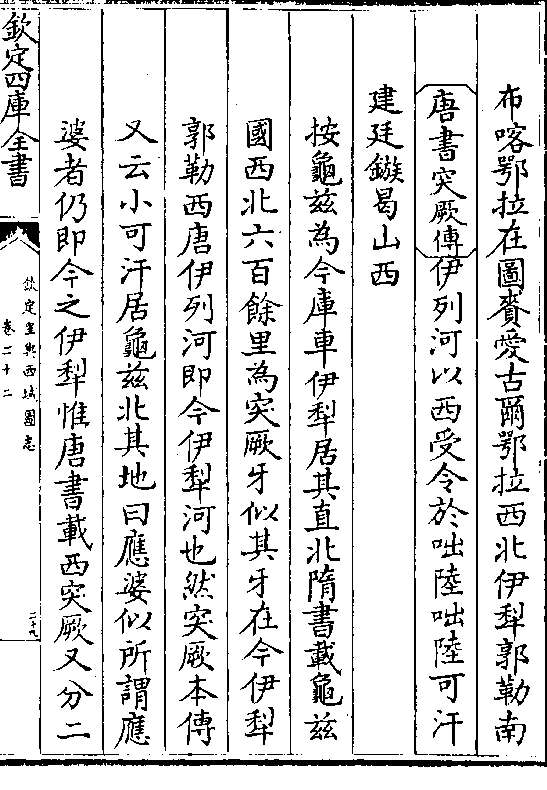 布喀鄂拉在圖賚愛古爾鄂拉西北伊犁郭勒南
唐書突厥傳伊列河以西受令於咄陸咄陸可汗
建廷鏃曷山西
按龜兹為今庫車伊犁居其直北隋書載龜兹
國西北六百餘里為突厥牙似其牙在今伊犁
郭勒西唐伊列河即今伊犁河也然突厥本傳
又云小可汗居龜兹北其地曰應娑似所謂應
娑者仍即今之伊犁惟唐書載西突厥又分二
欽定四庫全書
欽定皇輿西域圖志
卷二十二
二十九